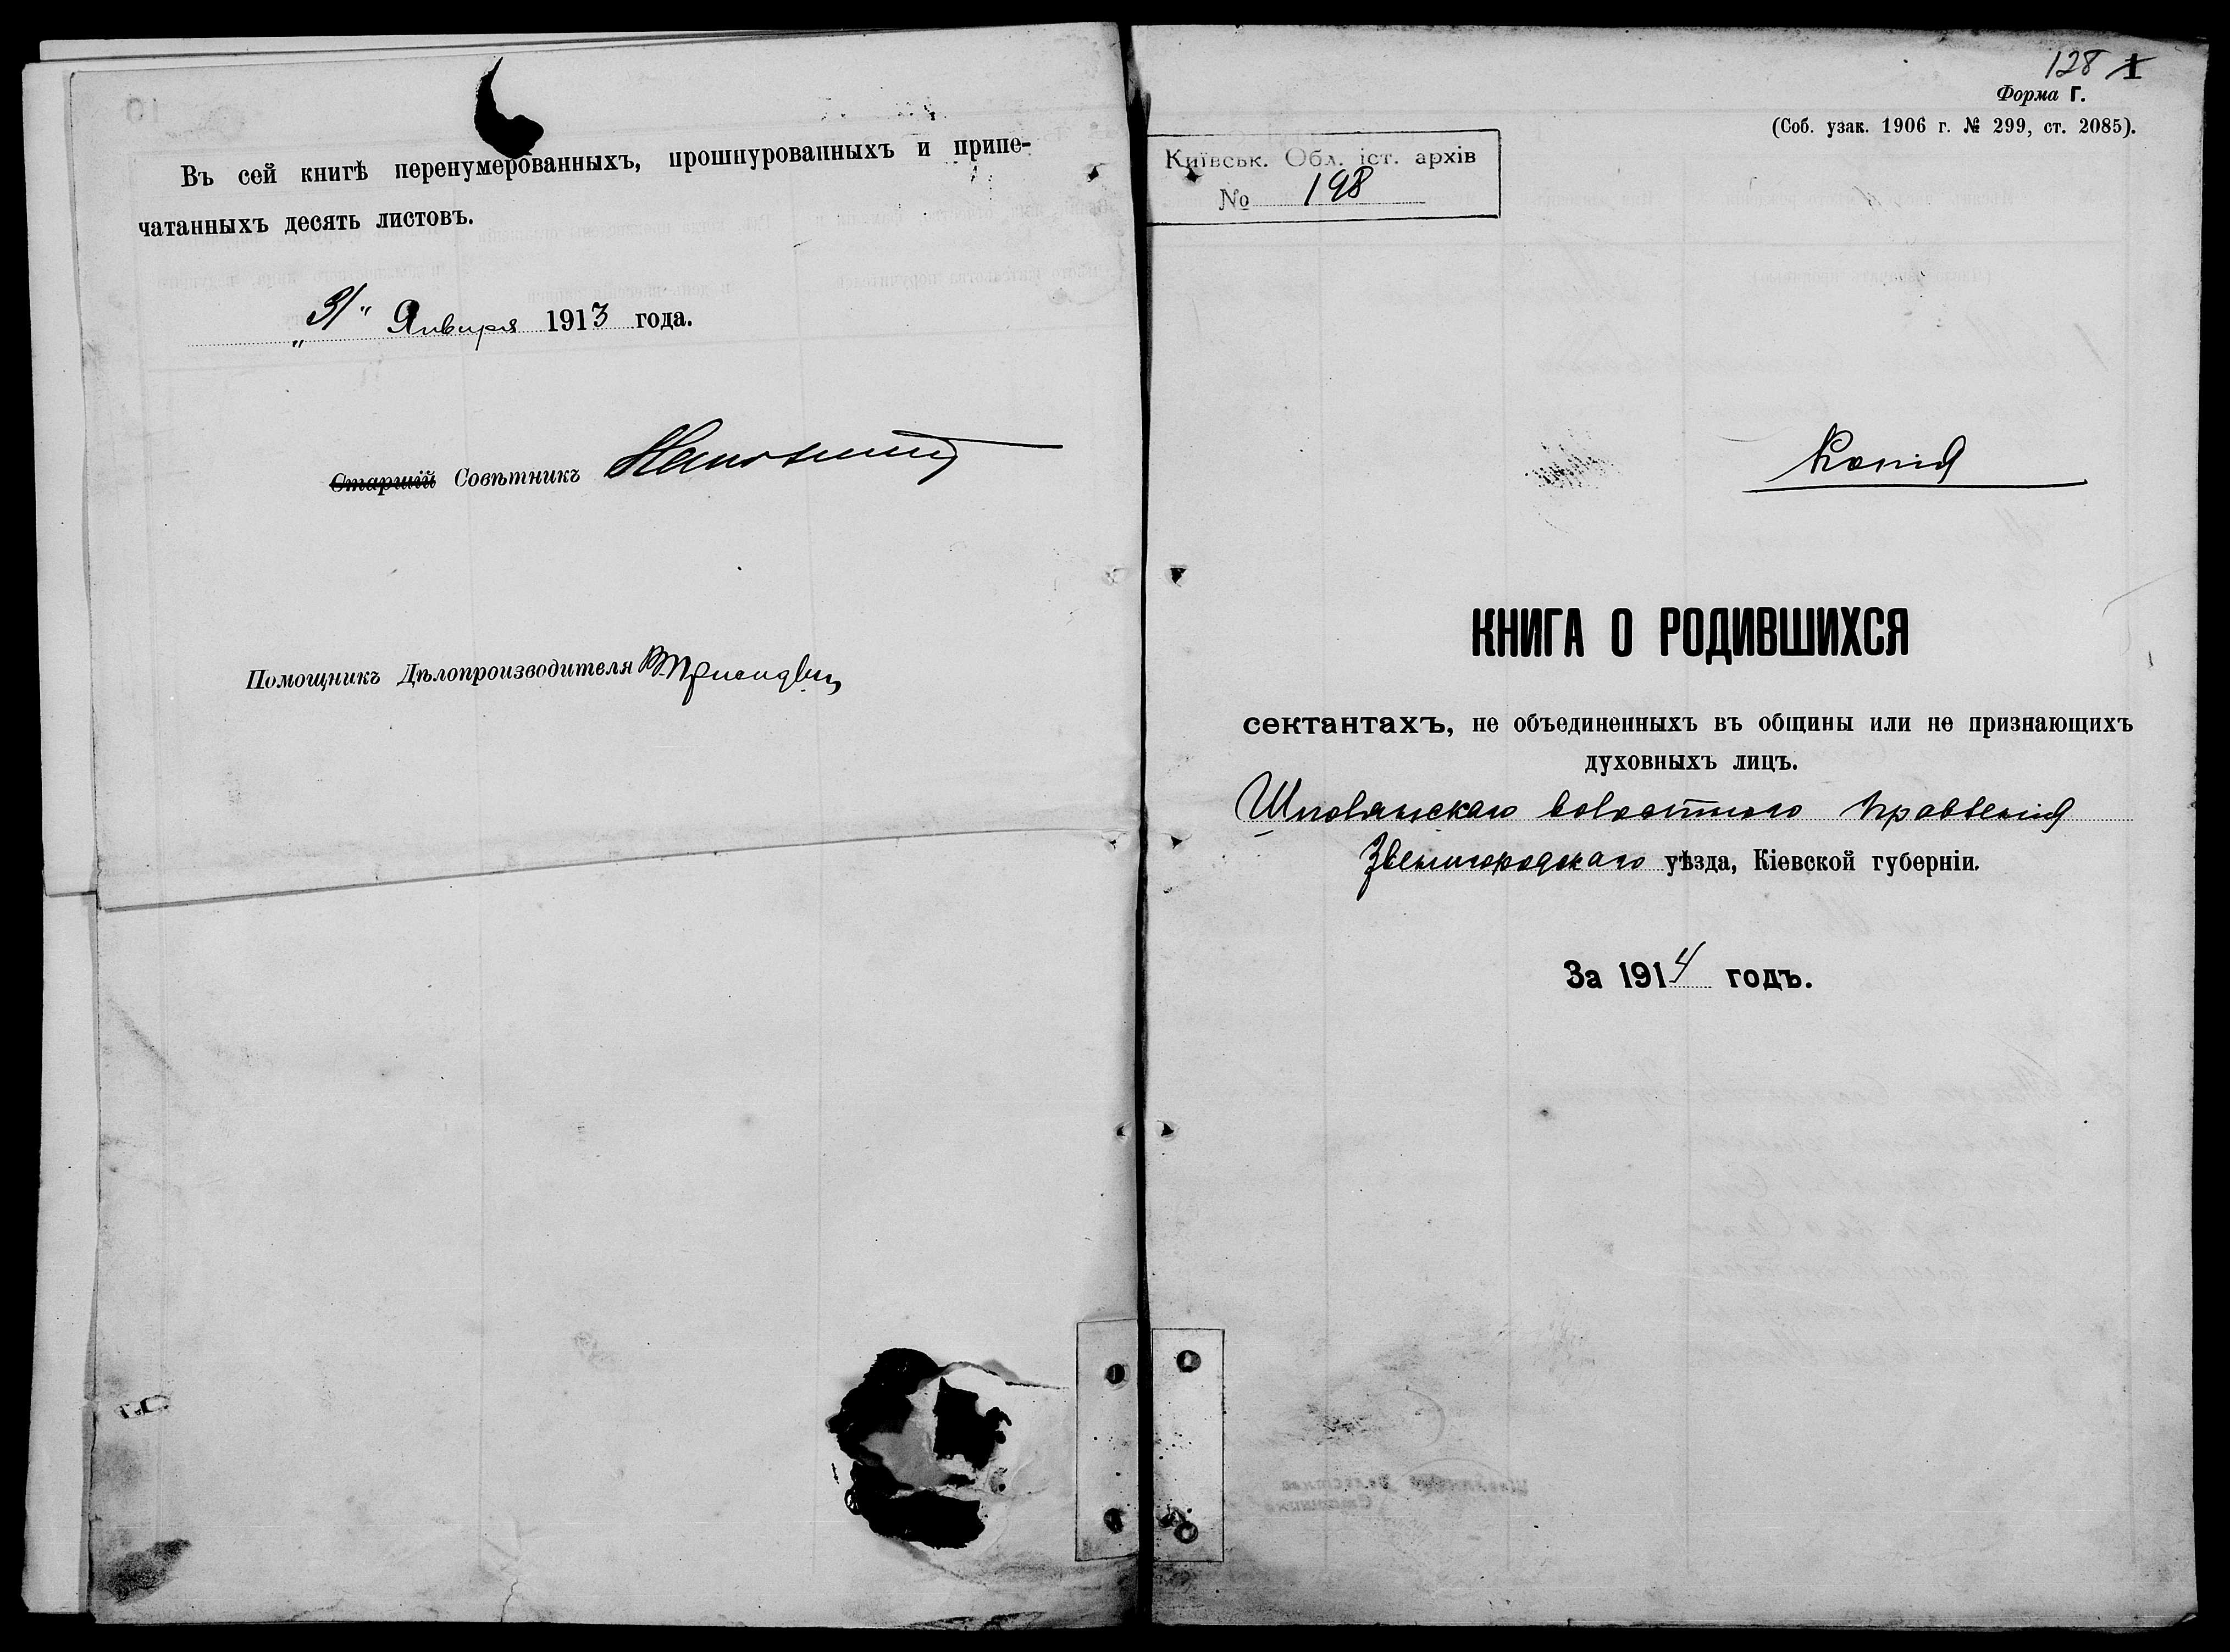 Въ сей книгѣ перенумерованныхъ, прошнурованныхъ и припе-
чатанныхъ десять листовъ.
„31" Января 1913 года.
Старшій Совѣтникъ
Помощникъ Дѣлопроизводителя
128 1
Форма Г.
(Соб. узак. 1906 г. № 299, ст. 2085).
Київськ. Обл. іст. архів
№ 198
Копія
КНИГА О РОДИВШИХСЯ
сектантахъ, не объединенныхъ въ общины или не признающихъ
духовныхъ лицъ.
Шполянскаго волостного правленія
Звенигородскаго уѣзда, Кіевской губерніи.
За 1914 годъ.